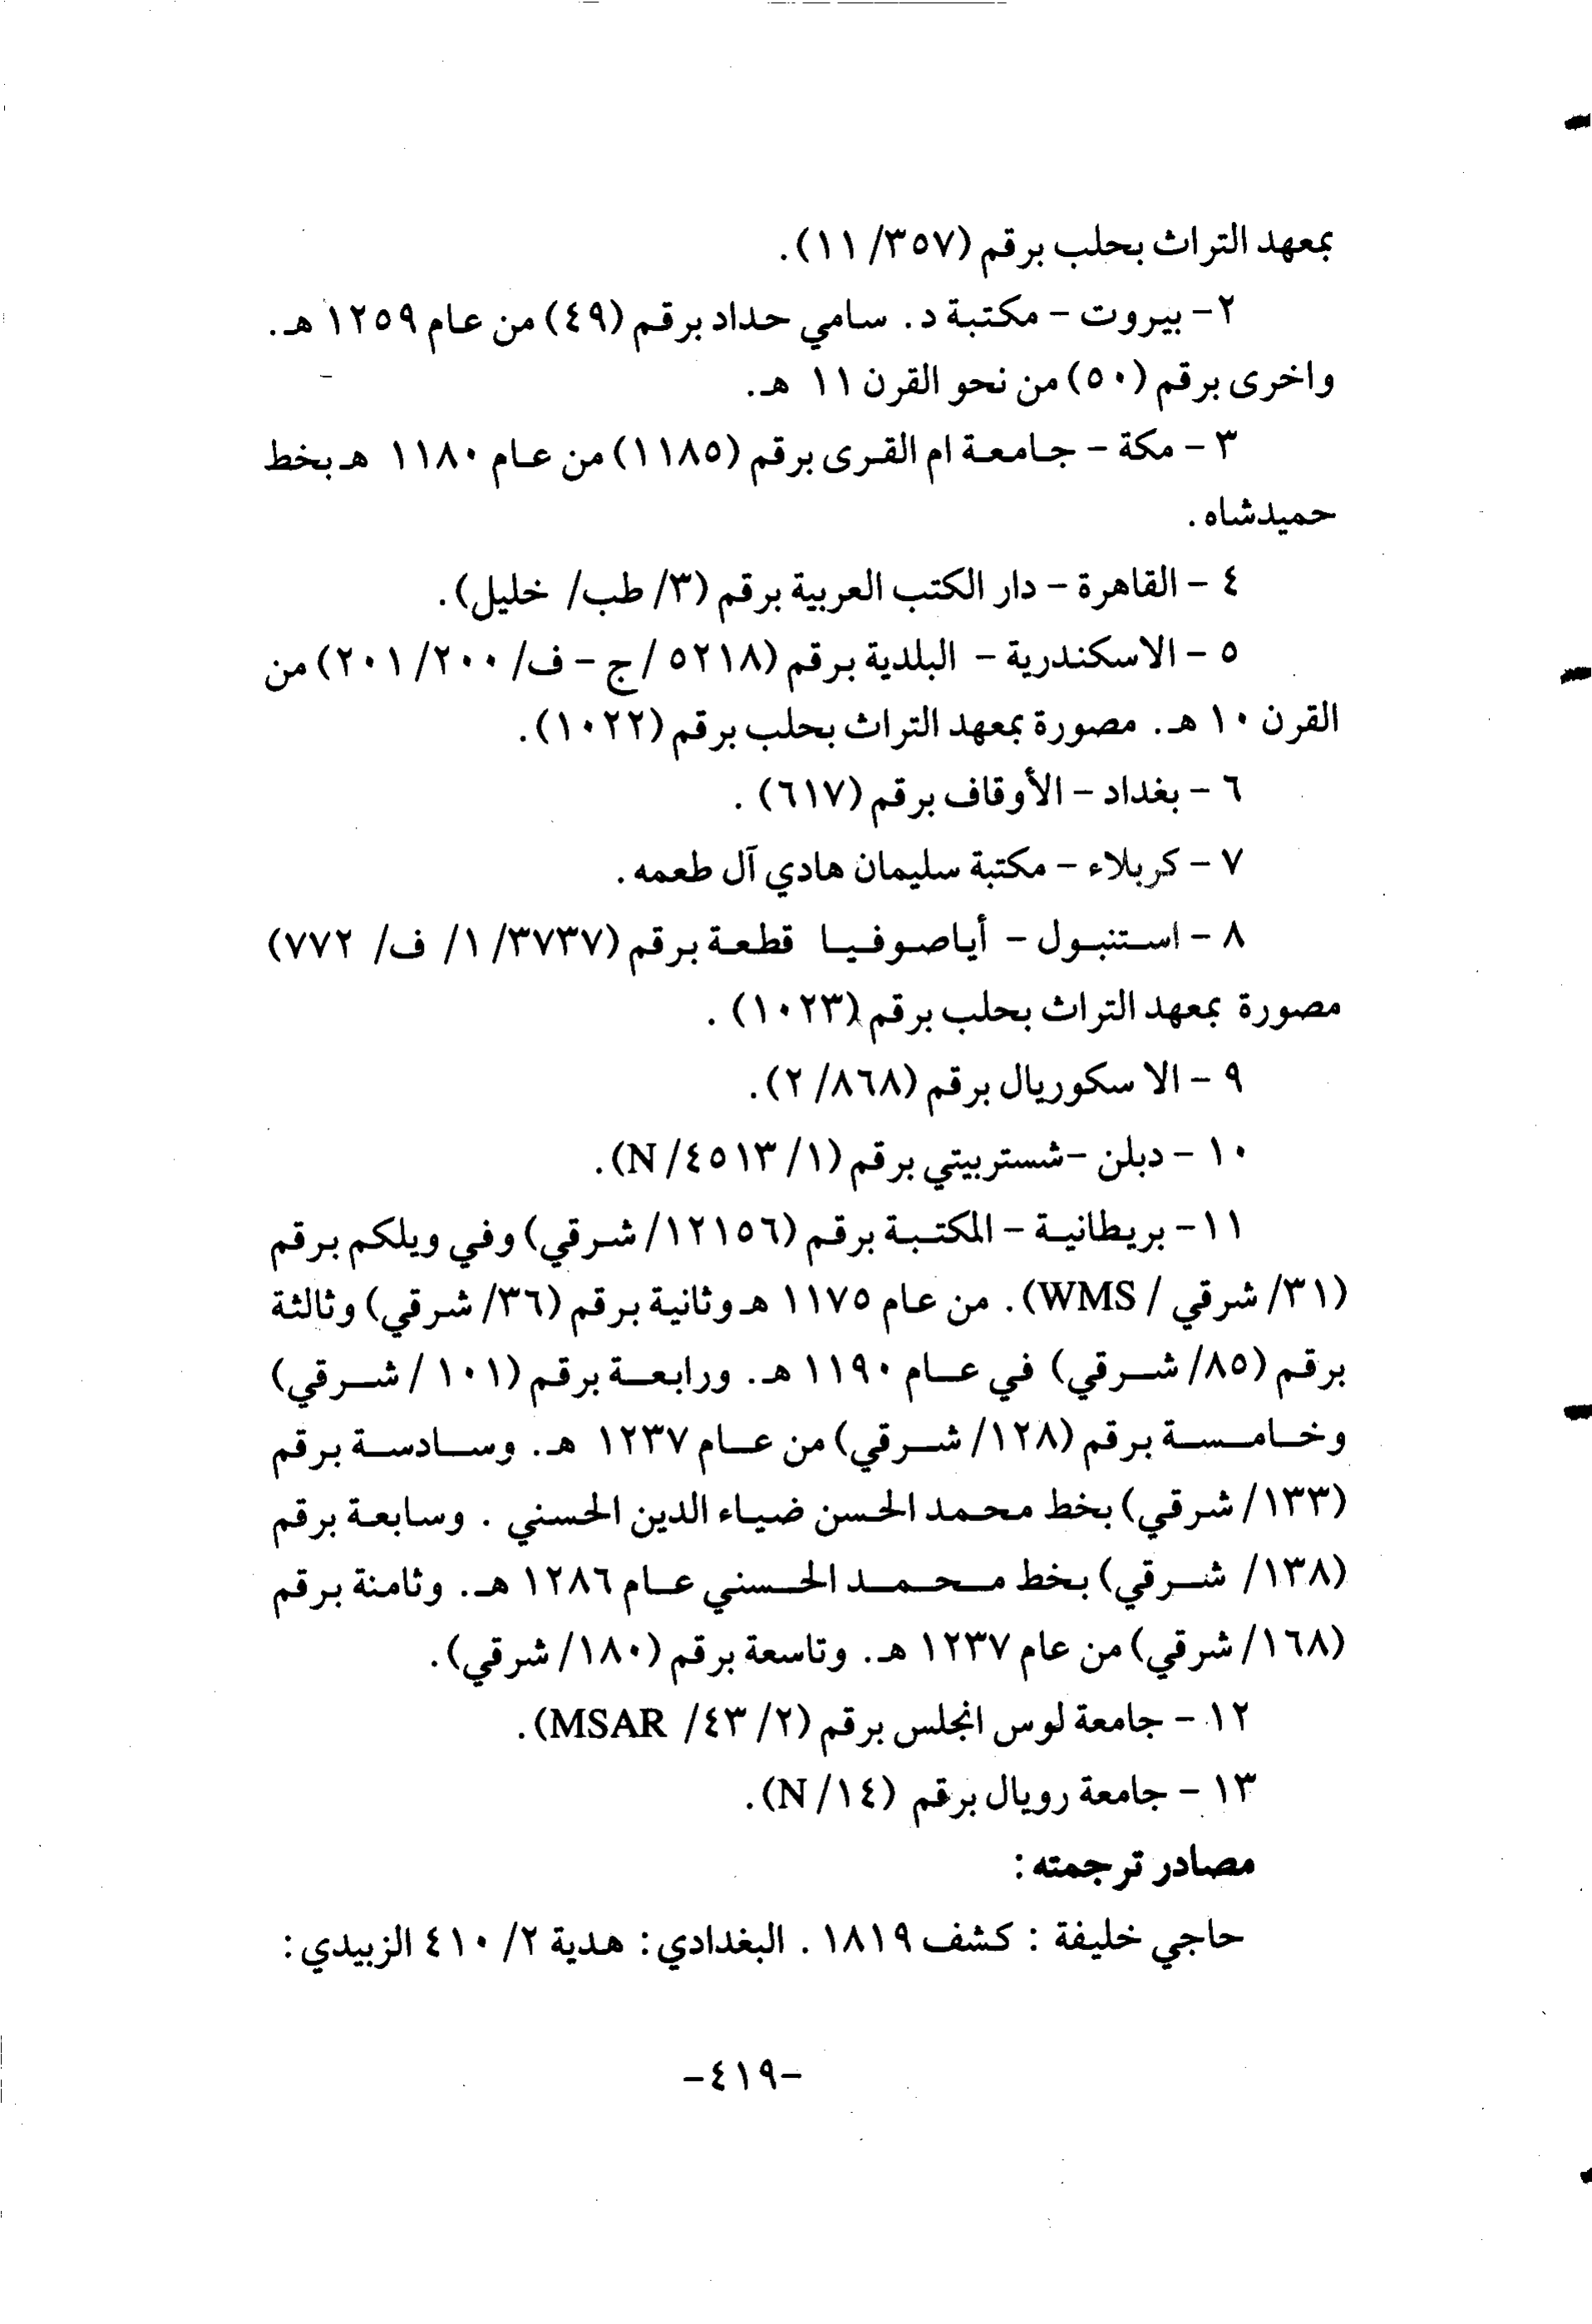 بمعهد التراث بحلب برقم (٣٥٧/ ١١).
٢- بيروت - مكتبة د. سامي حداد برقم (٤٩) من عام ١٢٥٩ هـ.
واخرى برقم (٥٠) من نحو القرن ١١ هـ.
٣ - مكة - جامعة ام القرى برقم (١١٨٥) من عام ١١٨٠ هـ بخط
حميدشاه.
٤ - القاهرة - دار الكتب العربية برقم (٣/ طب/ خليل).
٥ - الاسكندرية - البلدية برقم (٥٢١٨ /ج - ف/ ٢٠٠/ ٢٠١) من
القرن ١٠ هـ. مصورة بمعهد التراث بحلب برقم (١٠٢٢).
٦ - بغداد - الأوقاف برقم (٦١٧) .
٧ - كربلاء - مكتبة سليمان هادي آل طعمه .
٨ - استنبول - أياصوفيا قطعة برقم (٣٧٣٧/ ١/ ف/ ٧٧٢)
مصورة بمعهد التراث بحلب برقم (١٠٢٣) .
٩ - الا سكوريال برقم (٨٦٨/ ٢).
١٠ - دبلن -شستربيتي برقم (١/ ٤٥١٣/ N).
١١- بريطانية - المكتبة برقم (١٢١٥٦/ شرقي) وفي ويلكم برقم
(٣١/ شرقي / WMS). من عام ١١٧٥ هـ وثانية برقم (٣٦/ شرقي) وثالثة
برقم (٨٥/ شرقي) في عام ١١٩٠ هـ. ورابعة برقم (١٠١ / شرقي)
وخامسة برقم (١٢٨/ شرقي) من عام ١٢٣٧ هـ. وسادسة برقم
(١٣٣/ شرقي) بخط محمد الحسن ضياء الدين الحسني . وسابعة برقم
(١٣٨/ شرقي) بخط محمد الحسني عام ١٢٨٦ هـ. وثامنة برقم
(١٦٨/ شرقي) من عام ١٢٣٧ هـ. وتاسعة برقم (١٨٠/ شرقي).
١٢ - جامعة لوس انجلس برقم (٢/ ٤٣/ MSAR).
١٣ - جامعة رويال برقم (١٤/ N).
مصادر ترجمته :
حاجي خليفة : كشف ١٨١٩ . البغدادي: هدية ٢/ ٤١٠ الزبيدي:
-٤١٩-